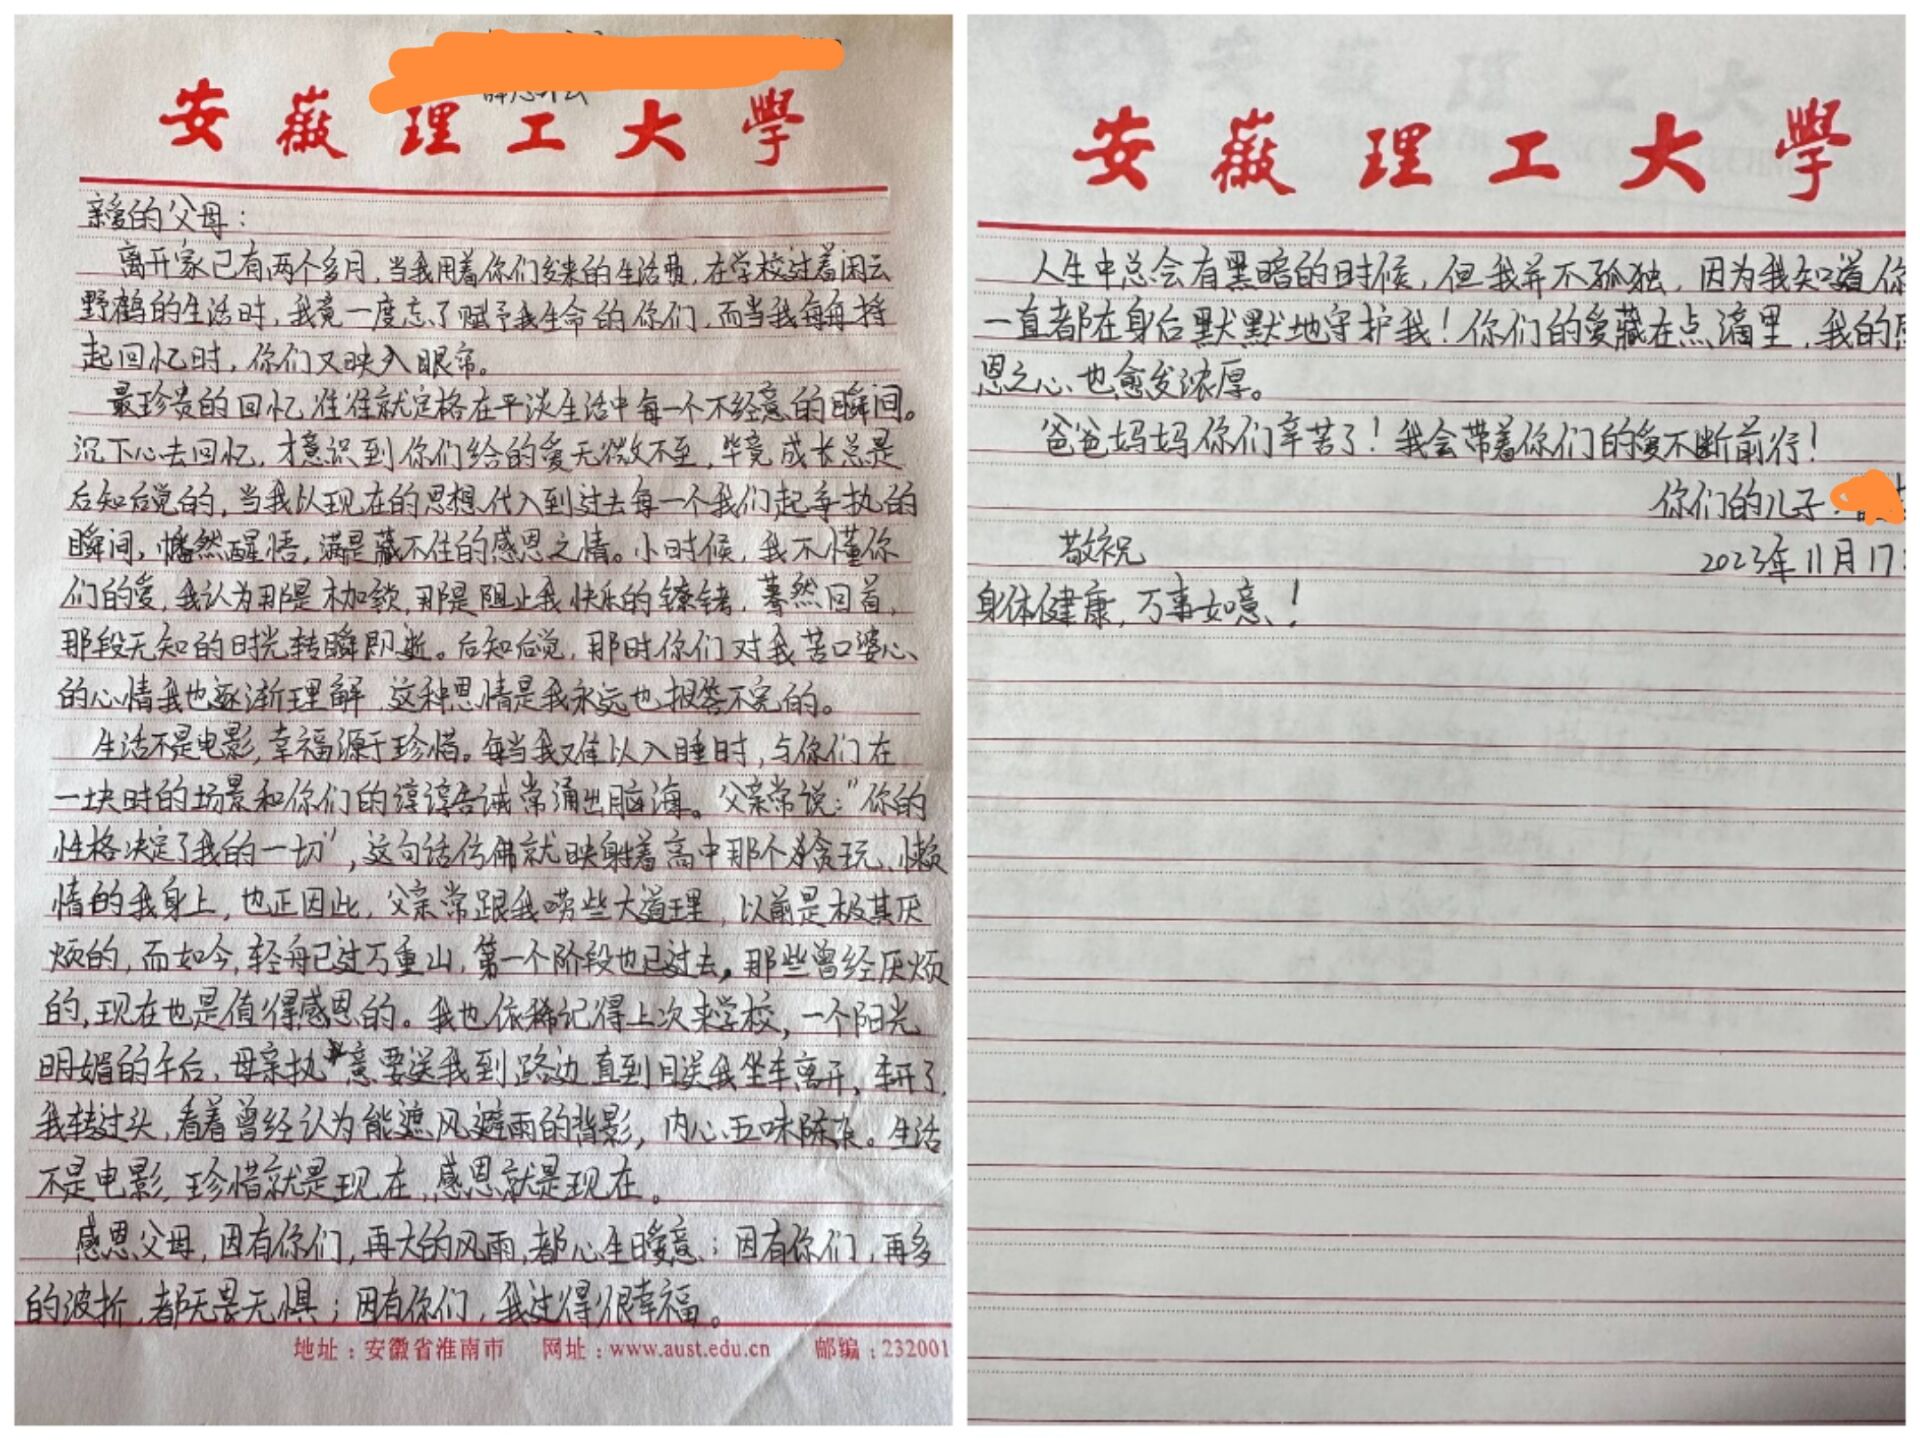 安徽理工大學
亲爱的父母：
离开家已有两个多月，当我用着你们发来的生活费，在学校过着闲云
野鹤的生活时，我竟一度忘了赋予我生命的你们，而当我每每拷
起回忆时，你们又映入眼帘。
最珍贵的回忆往往就定格在平淡生活中每一个不经意的瞬间。
沉下心去回忆，才意识到你们给的爱无微不至，毕竟成长总是
后知后觉的，当我以现在的思想代入到过去每一个我们起争执的
瞬间，幡然醒悟，满是藏不住的感恩之情。小时候，我不懂你
们的爱，我认为那是枷锁，那是阻止我快乐的镣铐，蓦然回首，
那段无知的时光转瞬即逝。后知后觉，那时你们对我苦口婆心
的心情我也逐渐理解，这种恩情是我永远也报答不完的。
生活不是电影，幸福源于珍惜。每当我难以入睡时，与你们在
一块时的场景和你们的谆谆告诫常涌出脑海。父亲常说：“你的
性格决定了我的一切”，这句话仿佛就映射着高中那个贪玩、懒
惰的我身上，也正因此，父亲常跟我唠些大道理，以前是极其厌
烦的，而如今，轻舟已过万重山，第一个阶段也已过去，那些曾经厌烦
的，现在也是值得感恩的。我也依稀记得上次来学校，一个阳光
明媚的午后，母亲执意要送我到路边直到目送我坐车离开，车开了，
我转过头，看着曾经认为能遮风避雨的背影，内心五味陈杂。生活
不是电影，珍惜就是现在，感恩就是现在。
感恩父母，因有你们，再大的风雨，都心生暖意；因有你们，再多
的波折，都无畏无惧；因有你们，我过得很幸福。
地址：安徽省淮南市 网址：www.aust.edu.cn 邮编：232001
安徽理工大學
人生中总会有黑暗的时候，但我并不孤独，因为我知道你
一直都在身后默默地守护我！你们的爱藏在点滴里，我的感
恩之心也愈发浓厚。
爸爸妈妈你们辛苦了！我会带着你们的爱不断前行！
你们的儿子：
敬祝
2023年11月17
身体健康，万事如意！